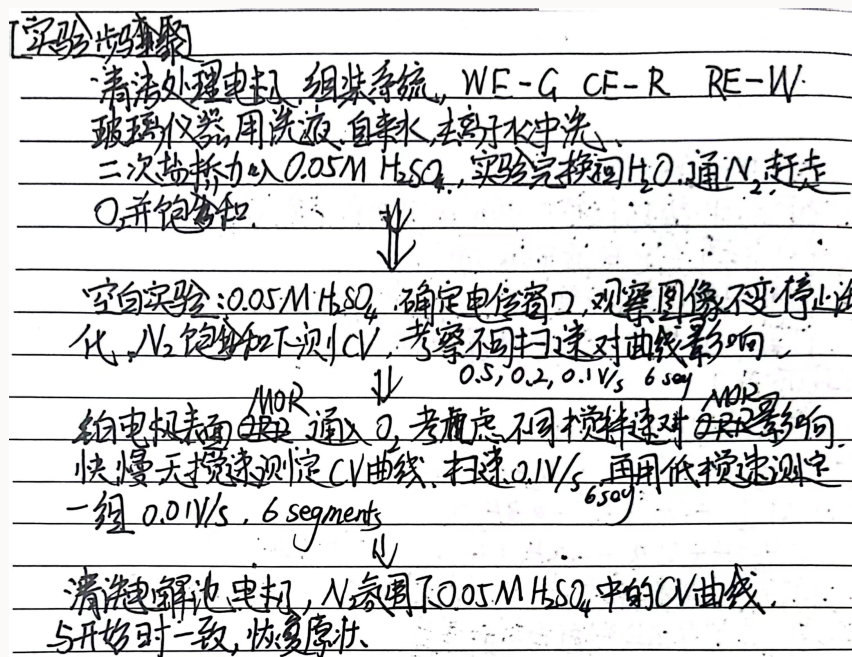 [实验步骤]
清洁处理电极,组装系统, WE-G CE-R RE-W.
玻璃仪器用洗液,自来水,去离子水冲洗.
二次盐桥加入0.05M H₂SO₄,实验完换回H₂O.通N₂赶走
O₂并饱和.
⇓
空白实验:0.05M H₂SO₄,确定电位窗口,观察图像不变停止活
化,N₂饱和下测CV,考察不同扫速对曲线影响.
0.5, 0.2, 0.1V/s 6 seg
⇓
MOR MOR
铂电极表面 通入O₂考虑不同搅拌速对 影响.
快慢无搅速测定CV曲线,扫速0.1V/s,再用低搅速测定
6seg.
一组0.01V/s, 6 segments
⇓
清洗电解池,电极,N₂氛围下0.05M H₂SO₄中的CV曲线.
与开始时一致,恢复原状.